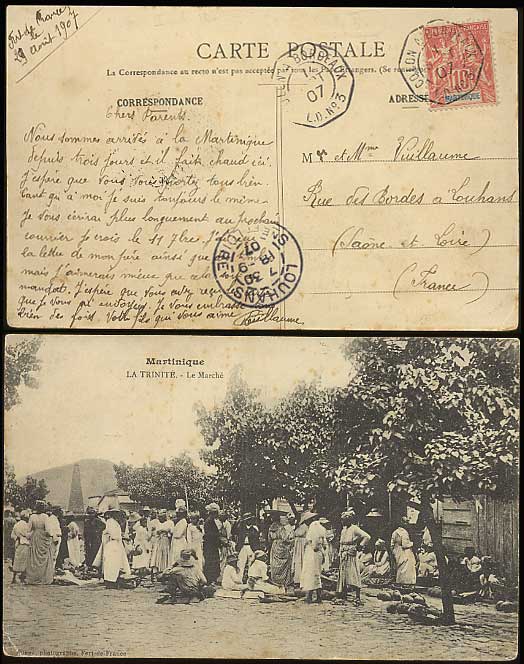 Fort de France
le
29 août 1907
CARTE POSTALE
La Correspondance au recto n'est pas acceptée par
CORRESPONDANCE
ADRESSE
Chers Parents.
Nous sommes arrivés à la Martinique
depuis trois jours et il fait chaud ici.
J'espère que vous vous portez tous bien.
tant qu'à moi je suis toujours le même.
Je vous écrirai plus longuement au prochain
courrier je crois le 11 7bre.
la lettre de mon père ainsi que
mais j'aimerais mieux que
mandat. J'espère que vous
que je vous ai envoyées. Je vous embrasse
bien des fois. Votre fils qui vous aime
Vuillaume
Mr et Mme Vuillaume
Rue des Bordes à Louhans
(Saône et Loire)
(France)
BORDEAUX
07
L.D. No 3
COLON
07
10
MARTINIQUE
LOUHANS
7 30
9
07
Martinique
LA TRINITÉ. - Le Marché
photographe, Fort-de-France